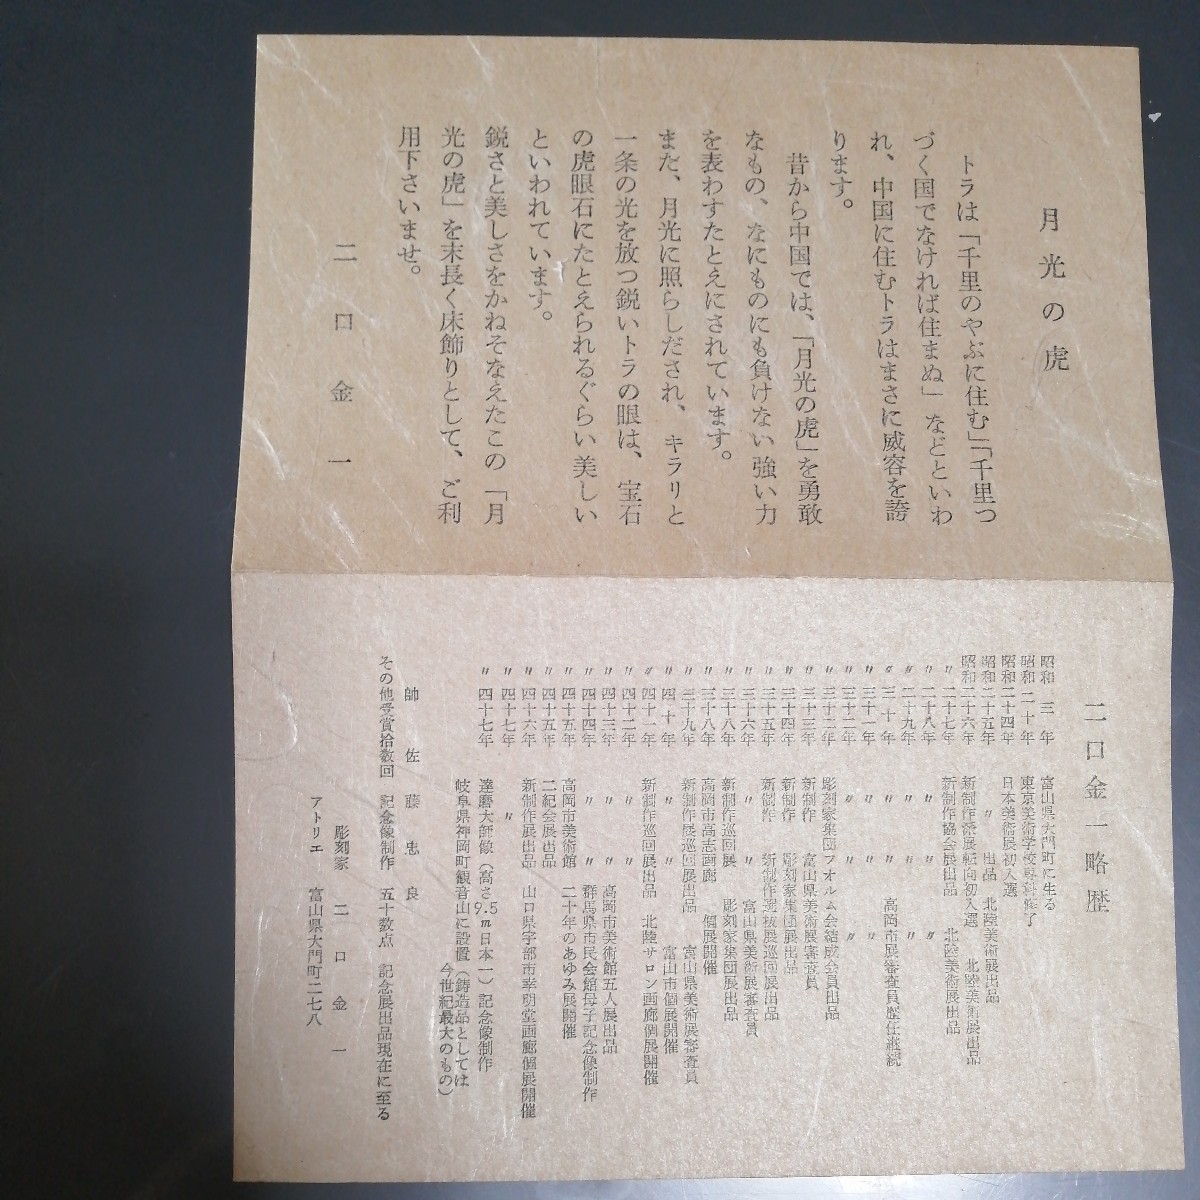 月光の虎
トラは「千里のやぶに住む」「千里つ
づく国でなければ住まぬ」などといわ
れ、中国に住むトラはまさに威容を誇
ります。
昔から中国では、「月光の虎」を勇敢
なもの、なにものにも負けない強い力
を表わすたとえにされています。
また、月光に照らしだされ、キラリと
一条の光を放つ鋭いトラの眼は、宝石
の虎眼石にたとえられるぐらい美しい
といわれています。
鋭さと美しさをかねそなえたこの「月
光の虎」を末長く床飾りとして、ご利
用下さいませ。
二口金一
二口金一略歴
昭和三年 富山県大門町に生る
昭和二十年 東京美術学校専科修了
昭和二十四年 日本美術展初入選
昭和二十五年 〃 出品 北陸美術展出品
昭和二十六年 新制作派展転向初入選 北陸美術展出品
〃 二十七年 新制作協会展出品 北陸美術展出品
〃 二十八年 〃 〃 〃
〃 二十九年 〃 〃
〃 三十年 〃 〃 高岡市展審査員歴任継続
〃 三十一年 〃 〃 〃
〃 三十二年 〃 〃 〃
〃 三十二年 彫刻家集団フオルム会結成会員出品
〃 三十三年 新制作 富山県美術展審査員
〃 三十四年 新制作 彫刻家集団展出品
〃 三十五年 新制作 新制作選抜展巡回展出品
〃 三十六年 〃 富山県美術展審査員
〃 三十八年 新制作巡回展 彫刻家集団展出品
〃 三十八年 高岡市高志画廊 個展開催
〃 三十九年 新制作展巡回展出品 富山県美術展審査員
〃 四十年 〃 〃 富山市個展開催
〃 四十一年 新制作巡回展出品 北陸サロン画廊個展開催
〃 四十二年 〃 〃
〃 四十三年 〃 〃 高岡市美術館五人展出品
〃 四十四年 〃 〃 群馬県市民会館母子記念像制作
〃 四十五年 高岡市美術館 二十年のあゆみ展開催
〃 四十五年 二紀会展出品
〃 四十六年 新制作展出品 山口県宇部市幸明堂画廊個展開催
〃 四十七年 〃
〃 四十七年 達磨大師像(高さ9.5m日本一)記念像制作
岐阜県神岡町観音山に設置(鋳造品としては
今世紀最大のもの)
師 佐藤忠良
その他受賞拾数回 記念像制作 五十数点 記念展出品現在に至る
彫刻家 二口金一
アトリエ 富山県大門町二七八